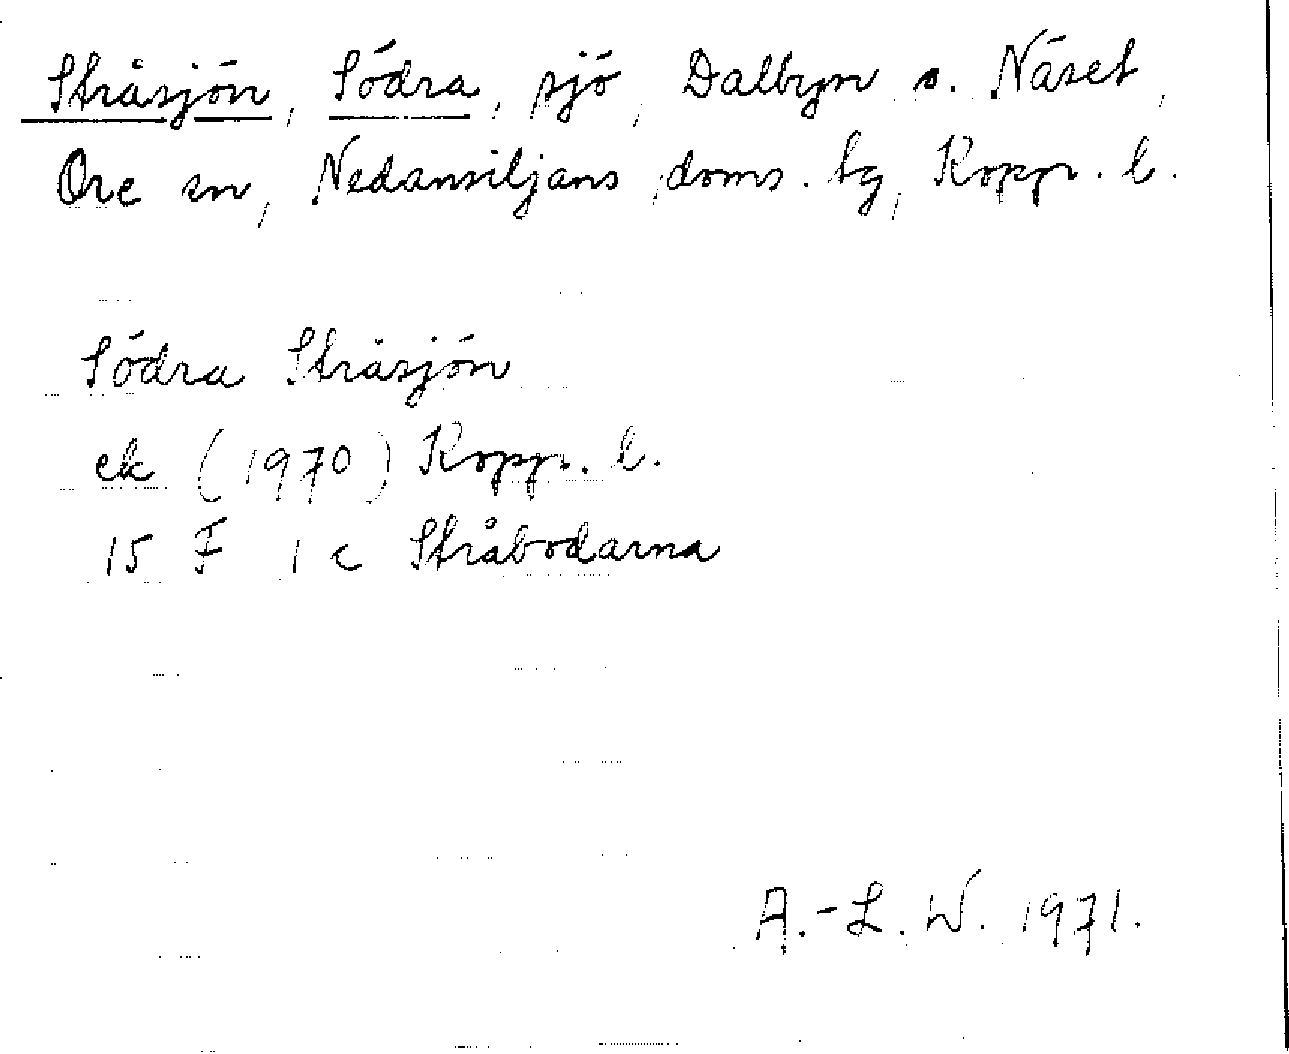 Stråsjön, Södra, sjö, Dalbyn o. Näset,
Ore sn, Nedansiljans doms. tg, Kopp. l.
Södra Stråsjön
ek (1970) Kopp. l.
15 F 1 c Stråbodarna
A.-L. W. 1971.